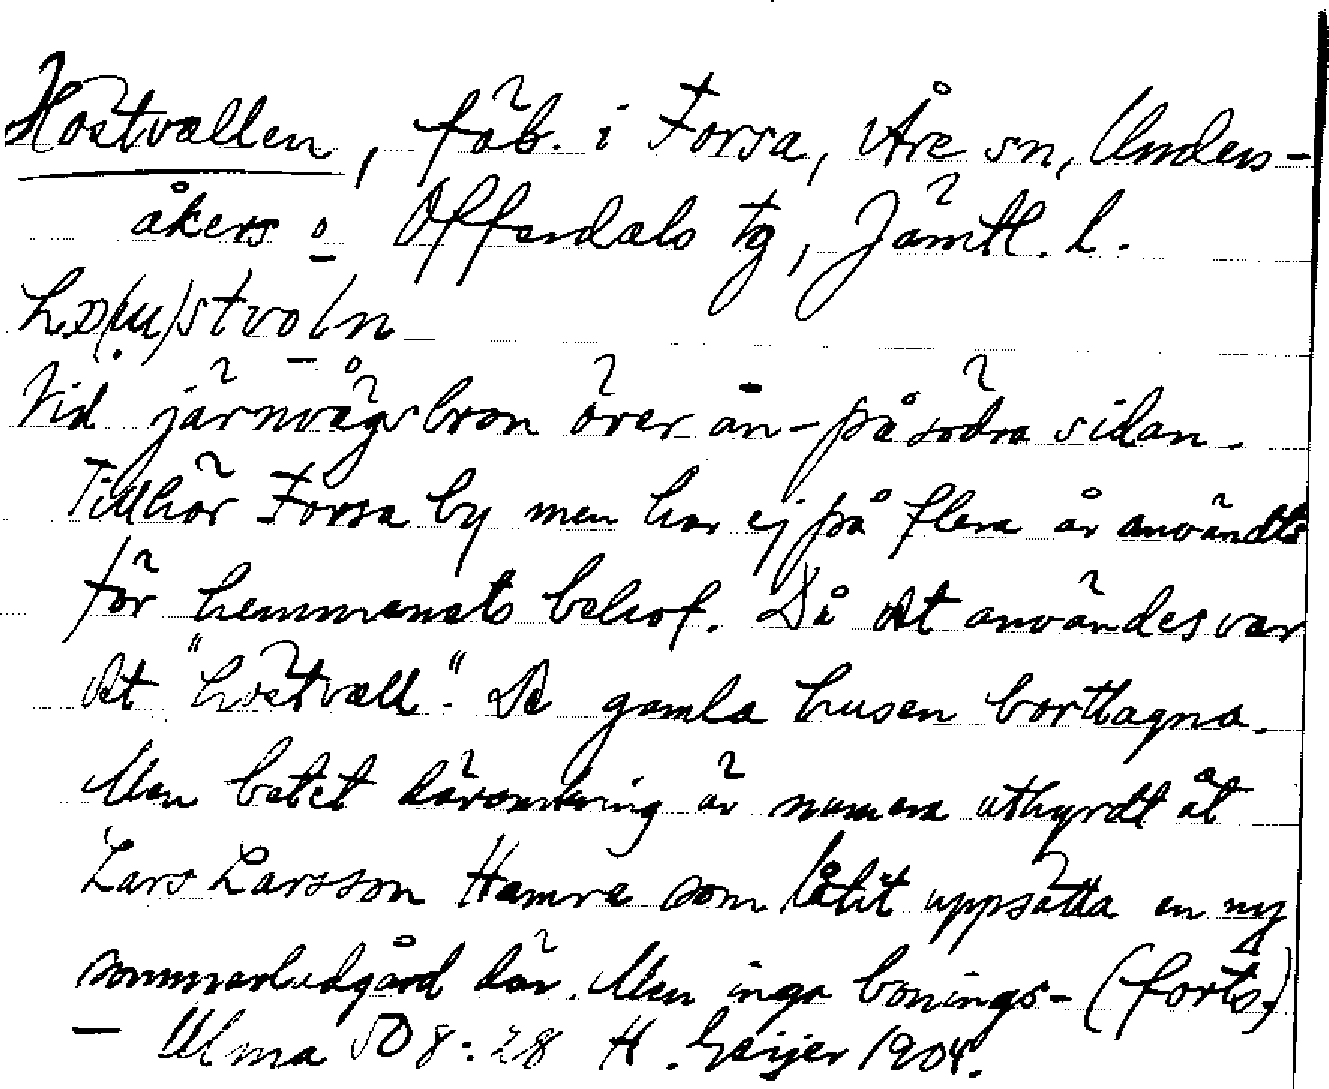 Höstvallen, fäb. i Forsa, Åre sn, Unders-
åkers o Offerdals tg, Jämtl. l.
Vid järnvägsbron över ån - på södra sidan.
Tillhör Forsa by men har ej på flera år användts
för hemmanets behof. Då det användes var
det "höstvall". De gamla husen borttagna.
Men betet däromkring är numera uthyrdt åt
Lars Larsson Hamre som låtit uppsätta en ny
sommarladgård där. Men inga bonings- (forts.)
— Ulma 508:28 H. Geijer 1904.